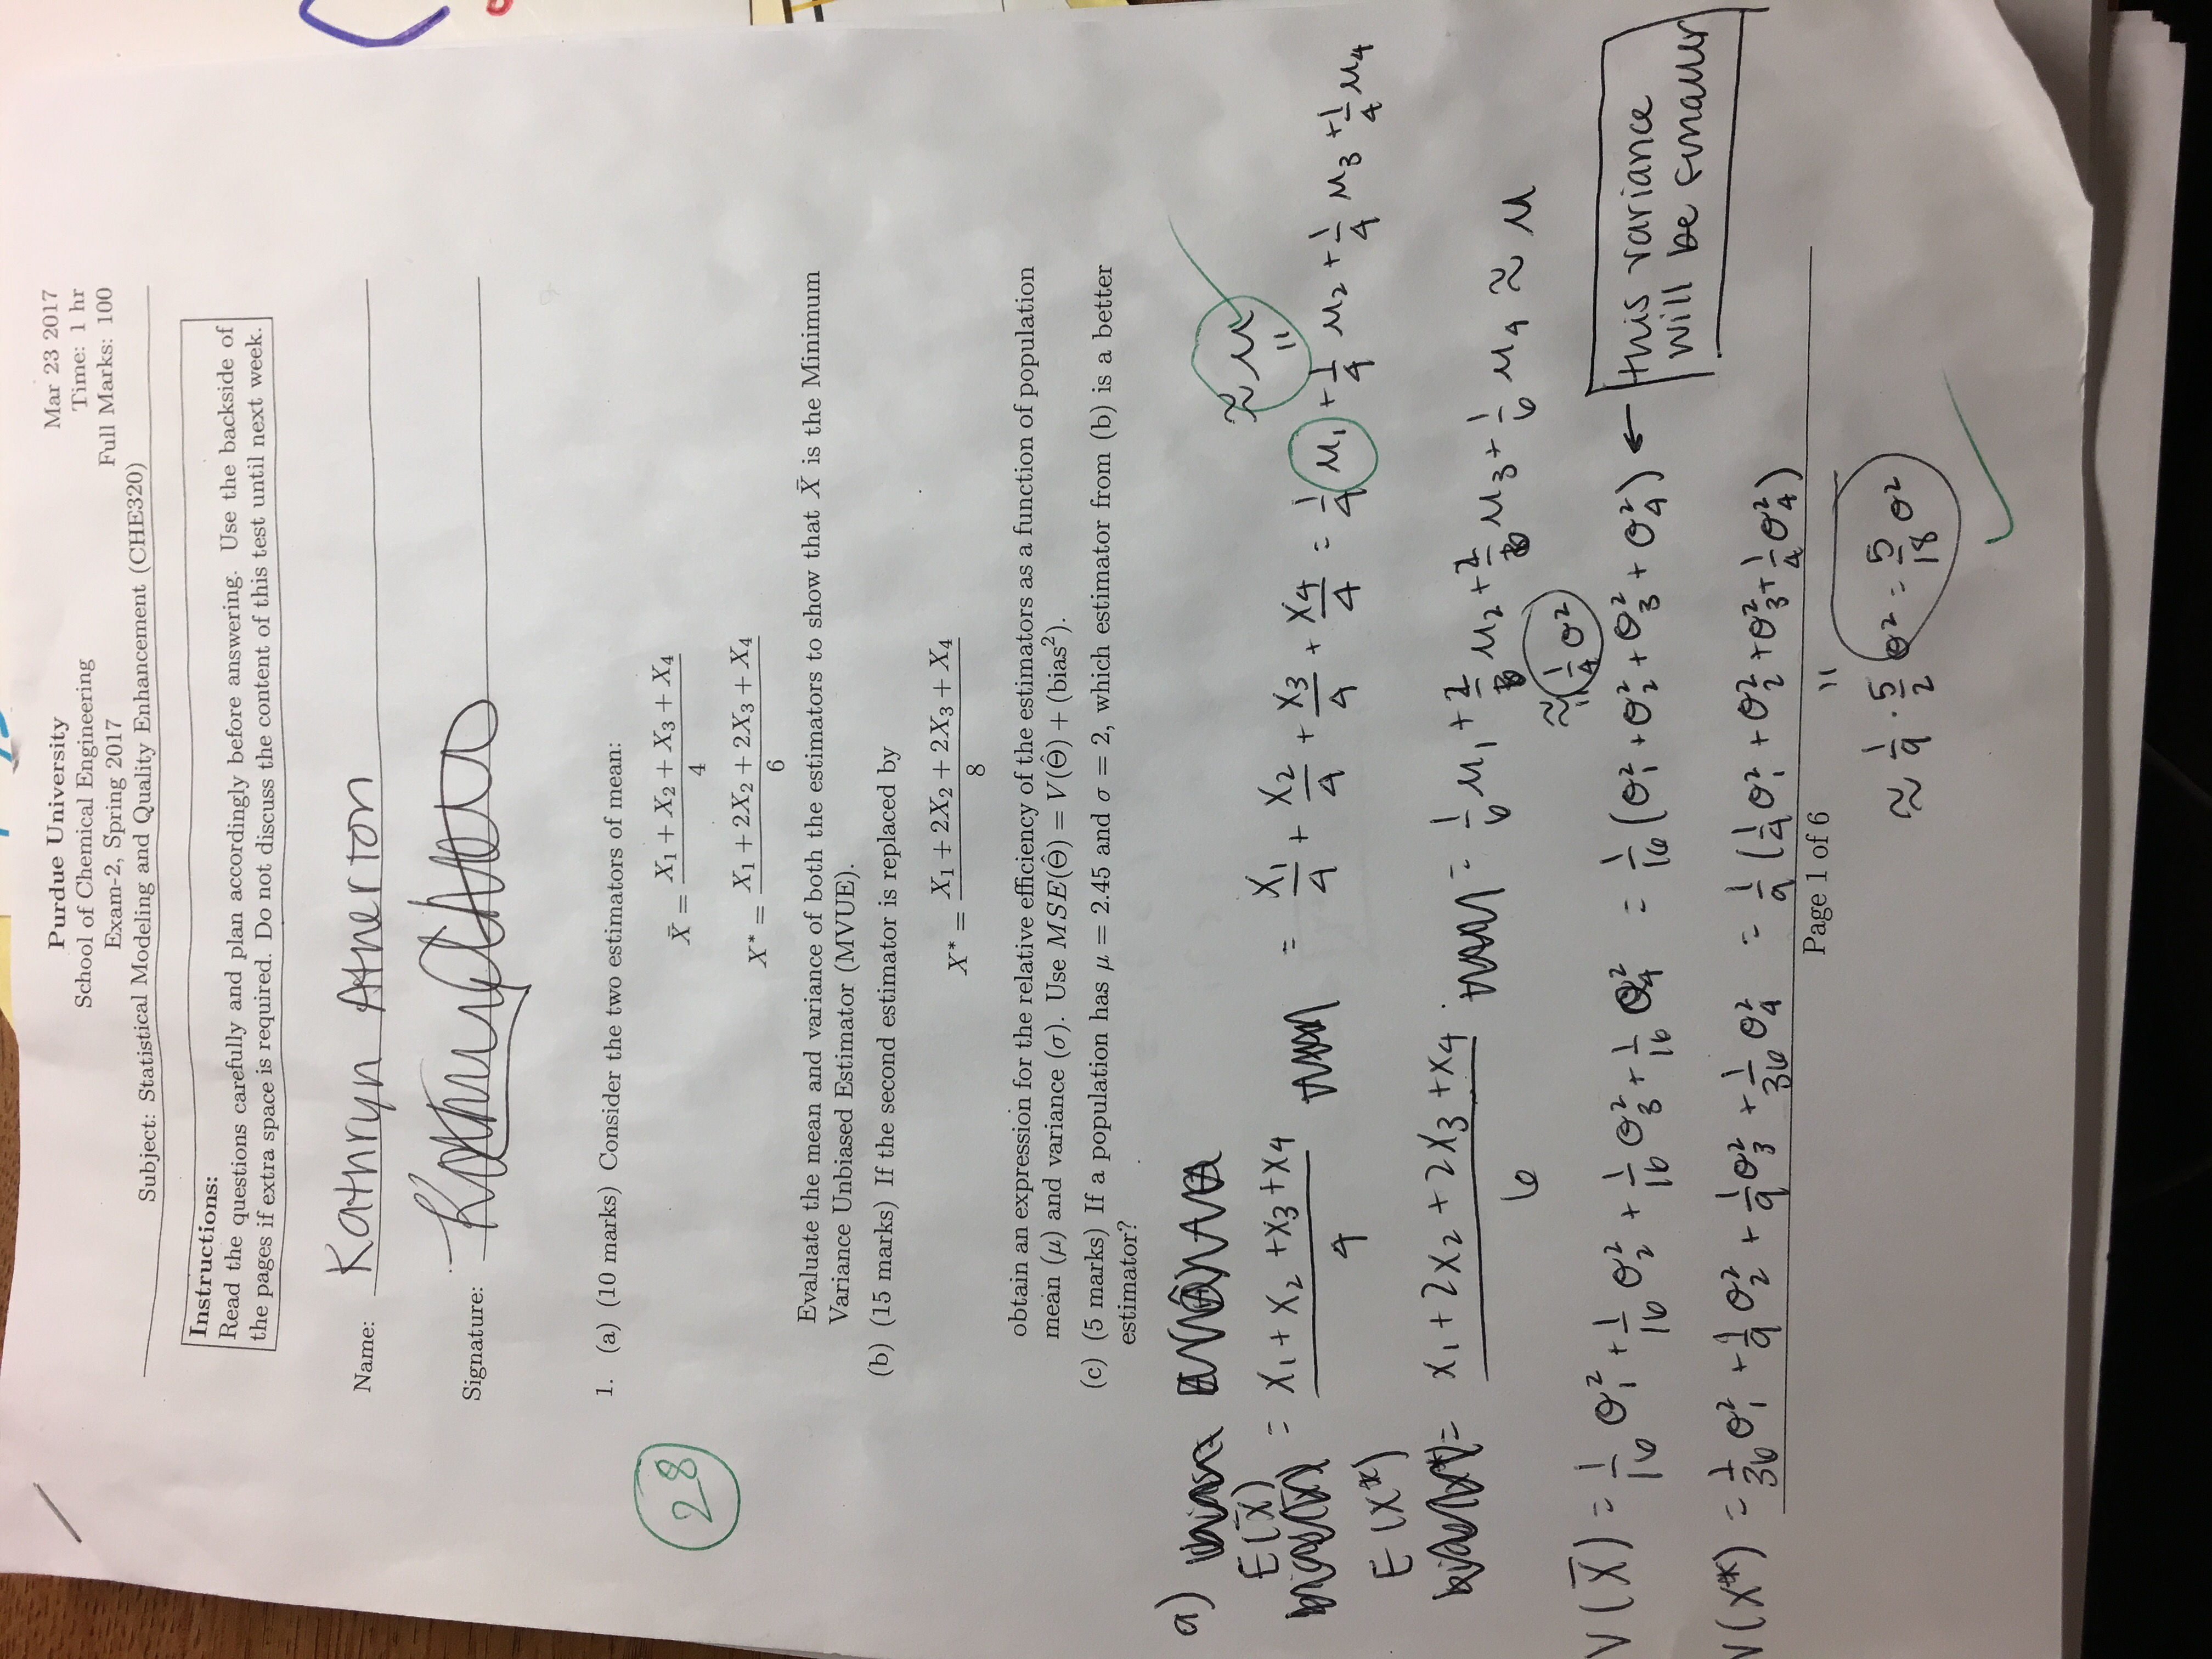 Purdue University
School of Chemical Engineering
Exam-2, Spring 2017
Subject: Statistical Modeling and Quality Enhancement (CHE320)
Mar 23 2017
Time: 1 hr
Full Marks: 100
Instructions:
Read the questions carefully and plan accordingly before answering. Use the backside of
the pages if extra space is required. Do not discuss the content of this test until next week.
Name: Kathryn Atherton
Signature:
28
1. (a) (10 marks) Consider the two estimators of mean:
X̄ = (X₁ + X₂ + X₃ + X₄)/4
X* = (X₁ + 2X₂ + 2X₃ + X₄)/6
Evaluate the mean and variance of both the estimators to show that X̄ is the Minimum
Variance Unbiased Estimator (MVUE).
(b) (15 marks) If the second estimator is replaced by
X* = (X₁ + 2X₂ + 2X₃ + X₄)/8
obtain an expression for the relative efficiency of the estimators as a function of population
mean (μ) and variance (σ). Use MSE(Θ̂) = V(Θ̂) + (bias²).
(c) (5 marks) If a population has μ = 2.45 and σ = 2, which estimator from (b) is a better
estimator?
a)
E(X̄) = (X₁ + X₂ + X₃ + X₄)/4 = X₁/4 + X₂/4 + X₃/4 + X₄/4 = 1/4 μ₁ + 1/4 μ₂ + 1/4 μ₃ + 1/4 μ₄
≈ μ
E(X*) = (X₁ + 2X₂ + 2X₃ + X₄)/6 = 1/6 μ₁ + μ₂ + μ₃ + 1/6 μ₄ ≈ μ
≈ 1/4 σ²
V(X̄) = 1/16 σ₁² + 1/16 σ₂² + 1/16 σ₃² + 1/16 σ₄² = 1/16 (σ₁² + σ₂² + σ₃² + σ₄²) ← this variance
will be smaller
V(X*) = 1/36 σ₁² + 1/9 σ₂² + 1/9 σ₃² + 1/36 σ₄² = 1/9 (1/4 σ₁² + σ₂² + σ₃² + 1/4 σ₄²)
Page 1 of 6
≈ 1/9 · 5/2 σ² = 5/18 σ²